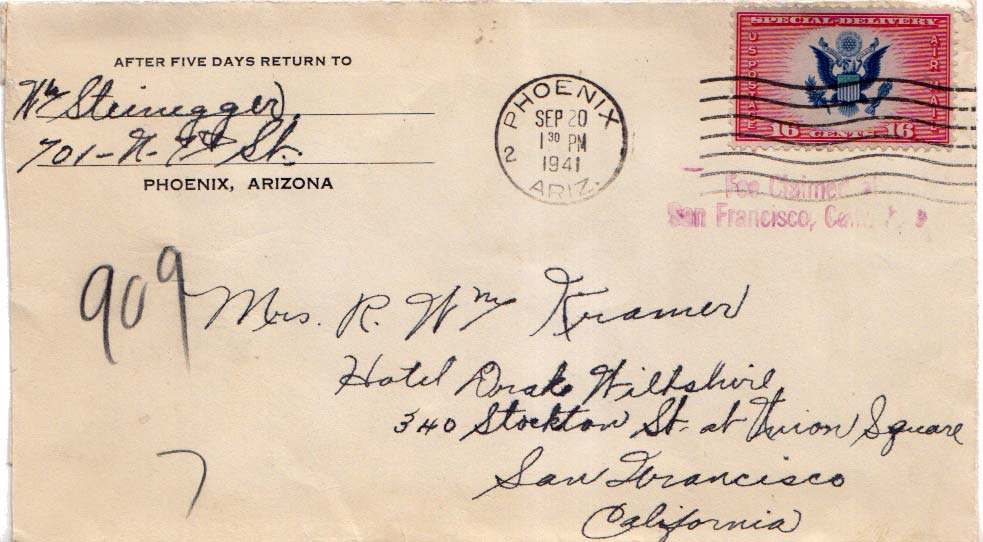 AFTER FIVE DAYS RETURN TO
Wm Steinegger
701-N-9th St.
PHOENIX, ARIZONA
PHOENIX
SEP 20
1 30 PM
1941
2
ARIZ.
SPECIAL DELIVERY
US POSTAGE
AIR MAIL
16 CENTS 16
Fee Claimed at
San Francisco, Calif.
909
Mrs. R. Wm Kramer
Hotel Drake Wiltshire
340 Stockton St. at Union Square
San Francisco
California
7